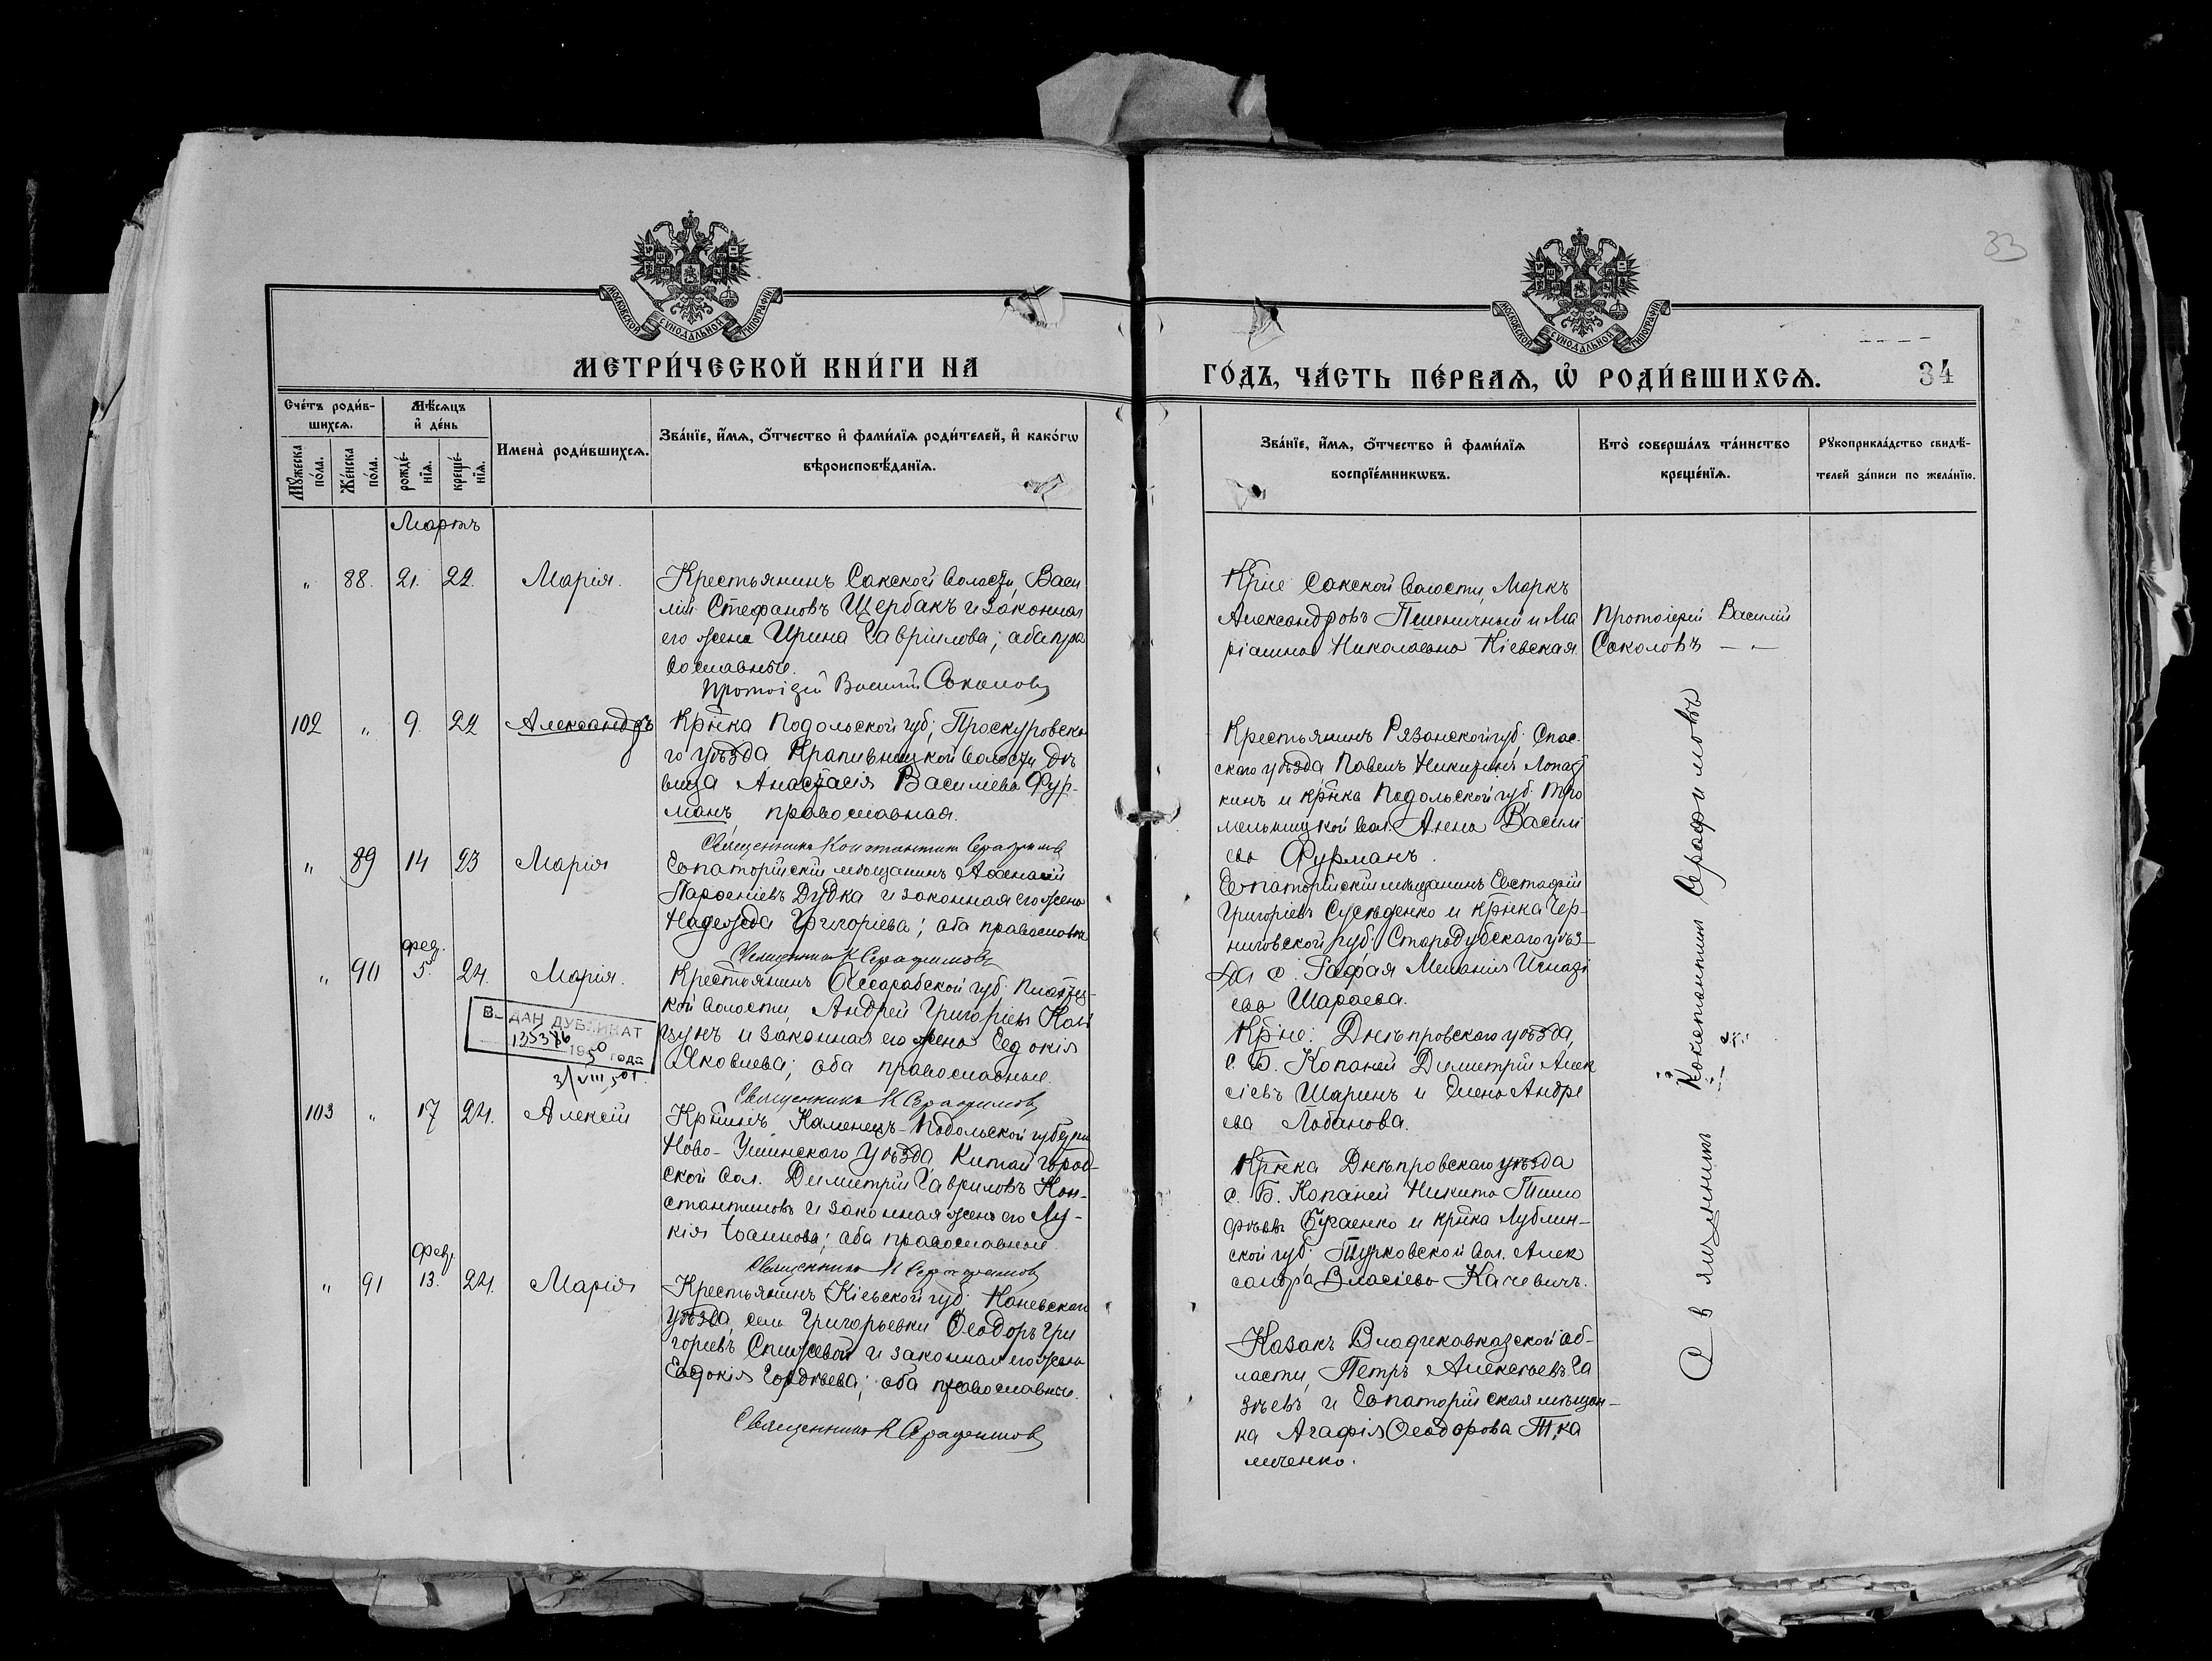 33
МОСКОВСКОЙ СУНОДАЛЬНОЙ ТИПОГРАФІИ
МОСКОВСКОЙ СУНОДАЛЬНОЙ ТИПОГРАФІИ
МЕТРИ́ЧЕСКОЙ КНИ́ГИ НА
ГО́ДЪ, ЧА́СТЬ ПЕ́РВАЯ, Ѡ҆ РОДИ́ВШИХСЯ.
34
Счéтъ роди́в-
шихся.
Мѣ́сяцъ
и҆ де́нь
Мꙋ́жеска по́ла.
Же́нска по́ла.
рожде́-нїя.
креще́-нїя.
Имена̀ роди́вшихся.
Зва́нїе, и҆́мя, ѻ҆́тчество и҆ фами́лїя роди́телей, и҆ како́гѡ
вѣроисповѣ́данїя.
Зва́нїе, и҆́мя, ѻ҆́тчество и҆ фами́лїя
воспрїе́мникѡвъ.
Кто̀ соверша́лъ та́инство
креще́нїя.
Рꙋкоприкла́дство свидѣ́-
телей за́писи по жела́нїю.
Мартъ
" 88. 21. 22. Марія.
Крестьянинъ Сакской волости, Васи
лій Стефановъ Щербакъ и законная
его жена Ирина Гавріилова; оба пра
вославные.
Протоіерей Василій Соколовъ
Кр̄не Сакской волости, Маркъ
Александровъ Пшеничный и Ма
ріамна Николаевна Кіевская.
Протоіерей Василій
Соколовъ
102 " 9. 22 Александръ
Кр̄нка Подольской губ; Проскуровска
го уѣзда Крапивницкой волости дѣ
вица Анастасія Василіева Фур-
манъ православная.
Священникъ Константинъ Серафимовъ
Крестьянинъ Рязанской губ. Спас-
скаго уѣзда Павелъ Никитинъ
кинъ и кр̄нка Подольской губ.
Анна Василі
ева Фурманъ.
" 89 14 23 Марія
Евпаторійскій мѣщанинъ Аѳанасій
Парѳеніевъ Дудка и законная его жена
Надежда Григоріева; оба православн
Священникъ К Серафимовъ
Евпаторійскій мѣщанинъ Евстафій
Григоріевъ и кр̄нка Чер-
ниговской губ. Стародубскаго уѣз-
да с. Меланія Игнаті
ева Шараева.
" 90 фев. 5. 24. Марія.
Крестьянинъ Бессарабской губ.
кой волости, Андрей Григорьевъ
и законная его жена Евдокія
Яковлева; оба православные.
Священникъ К Серафимовъ
ВЫДАН ДУБЛИКАТ
135376
1950 года
31/VIII 50г.
Кр̄не: Днѣпровскаго уѣзда,
с. Б. Копаней Димитрій Алек
сіевъ Шаринъ и Елена Андре
ева Лобанова.
103 " 17 24. Алексій
Кр̄нинъ Каменецъ-Подольской губерн
Ново-Ушинскаго уѣзда Китай город-
ской вол. Димитрій Гавриловъ Кон-
стантиновъ и законная жена его Лу-
кія Іоаннова; оба православные.
Священникъ К Серафимовъ
Кр̄нка Днѣпровскаго уѣзда
с. Б. Копаней Никита Тимо
фѣевъ Бугаенко и кр̄нка Люблин-
ской губ. Турковской вол. Алек
сандра Власіева Качевичъ.
" 91 фев. 13. 24. Марія
Крестьянинъ Кіевской губ. Каневскаго
уѣзда, села Григорьевки Ѳеодоръ Гри
горіевъ и законная его жена
Евдокія Гордѣева; оба православные.
Священникъ К Серафимовъ
Казакъ Владикавказской об-
ласти, Петръ Алексѣевъ Га
зѣевъ и Евпаторійская мѣщан-
ка Агафія Ѳеодорова Тка
ченко.
Священникъ Константинъ Серафимовъ